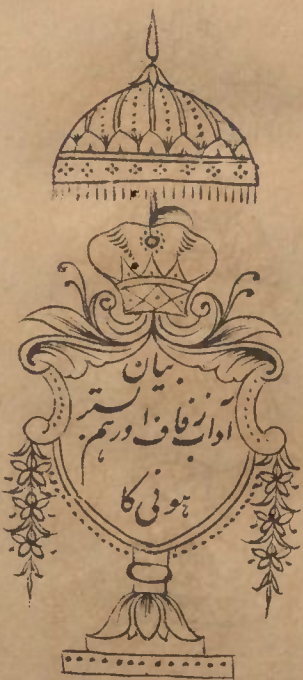 بیان
آداب زفاف اور ہم بستر
ہونی کا